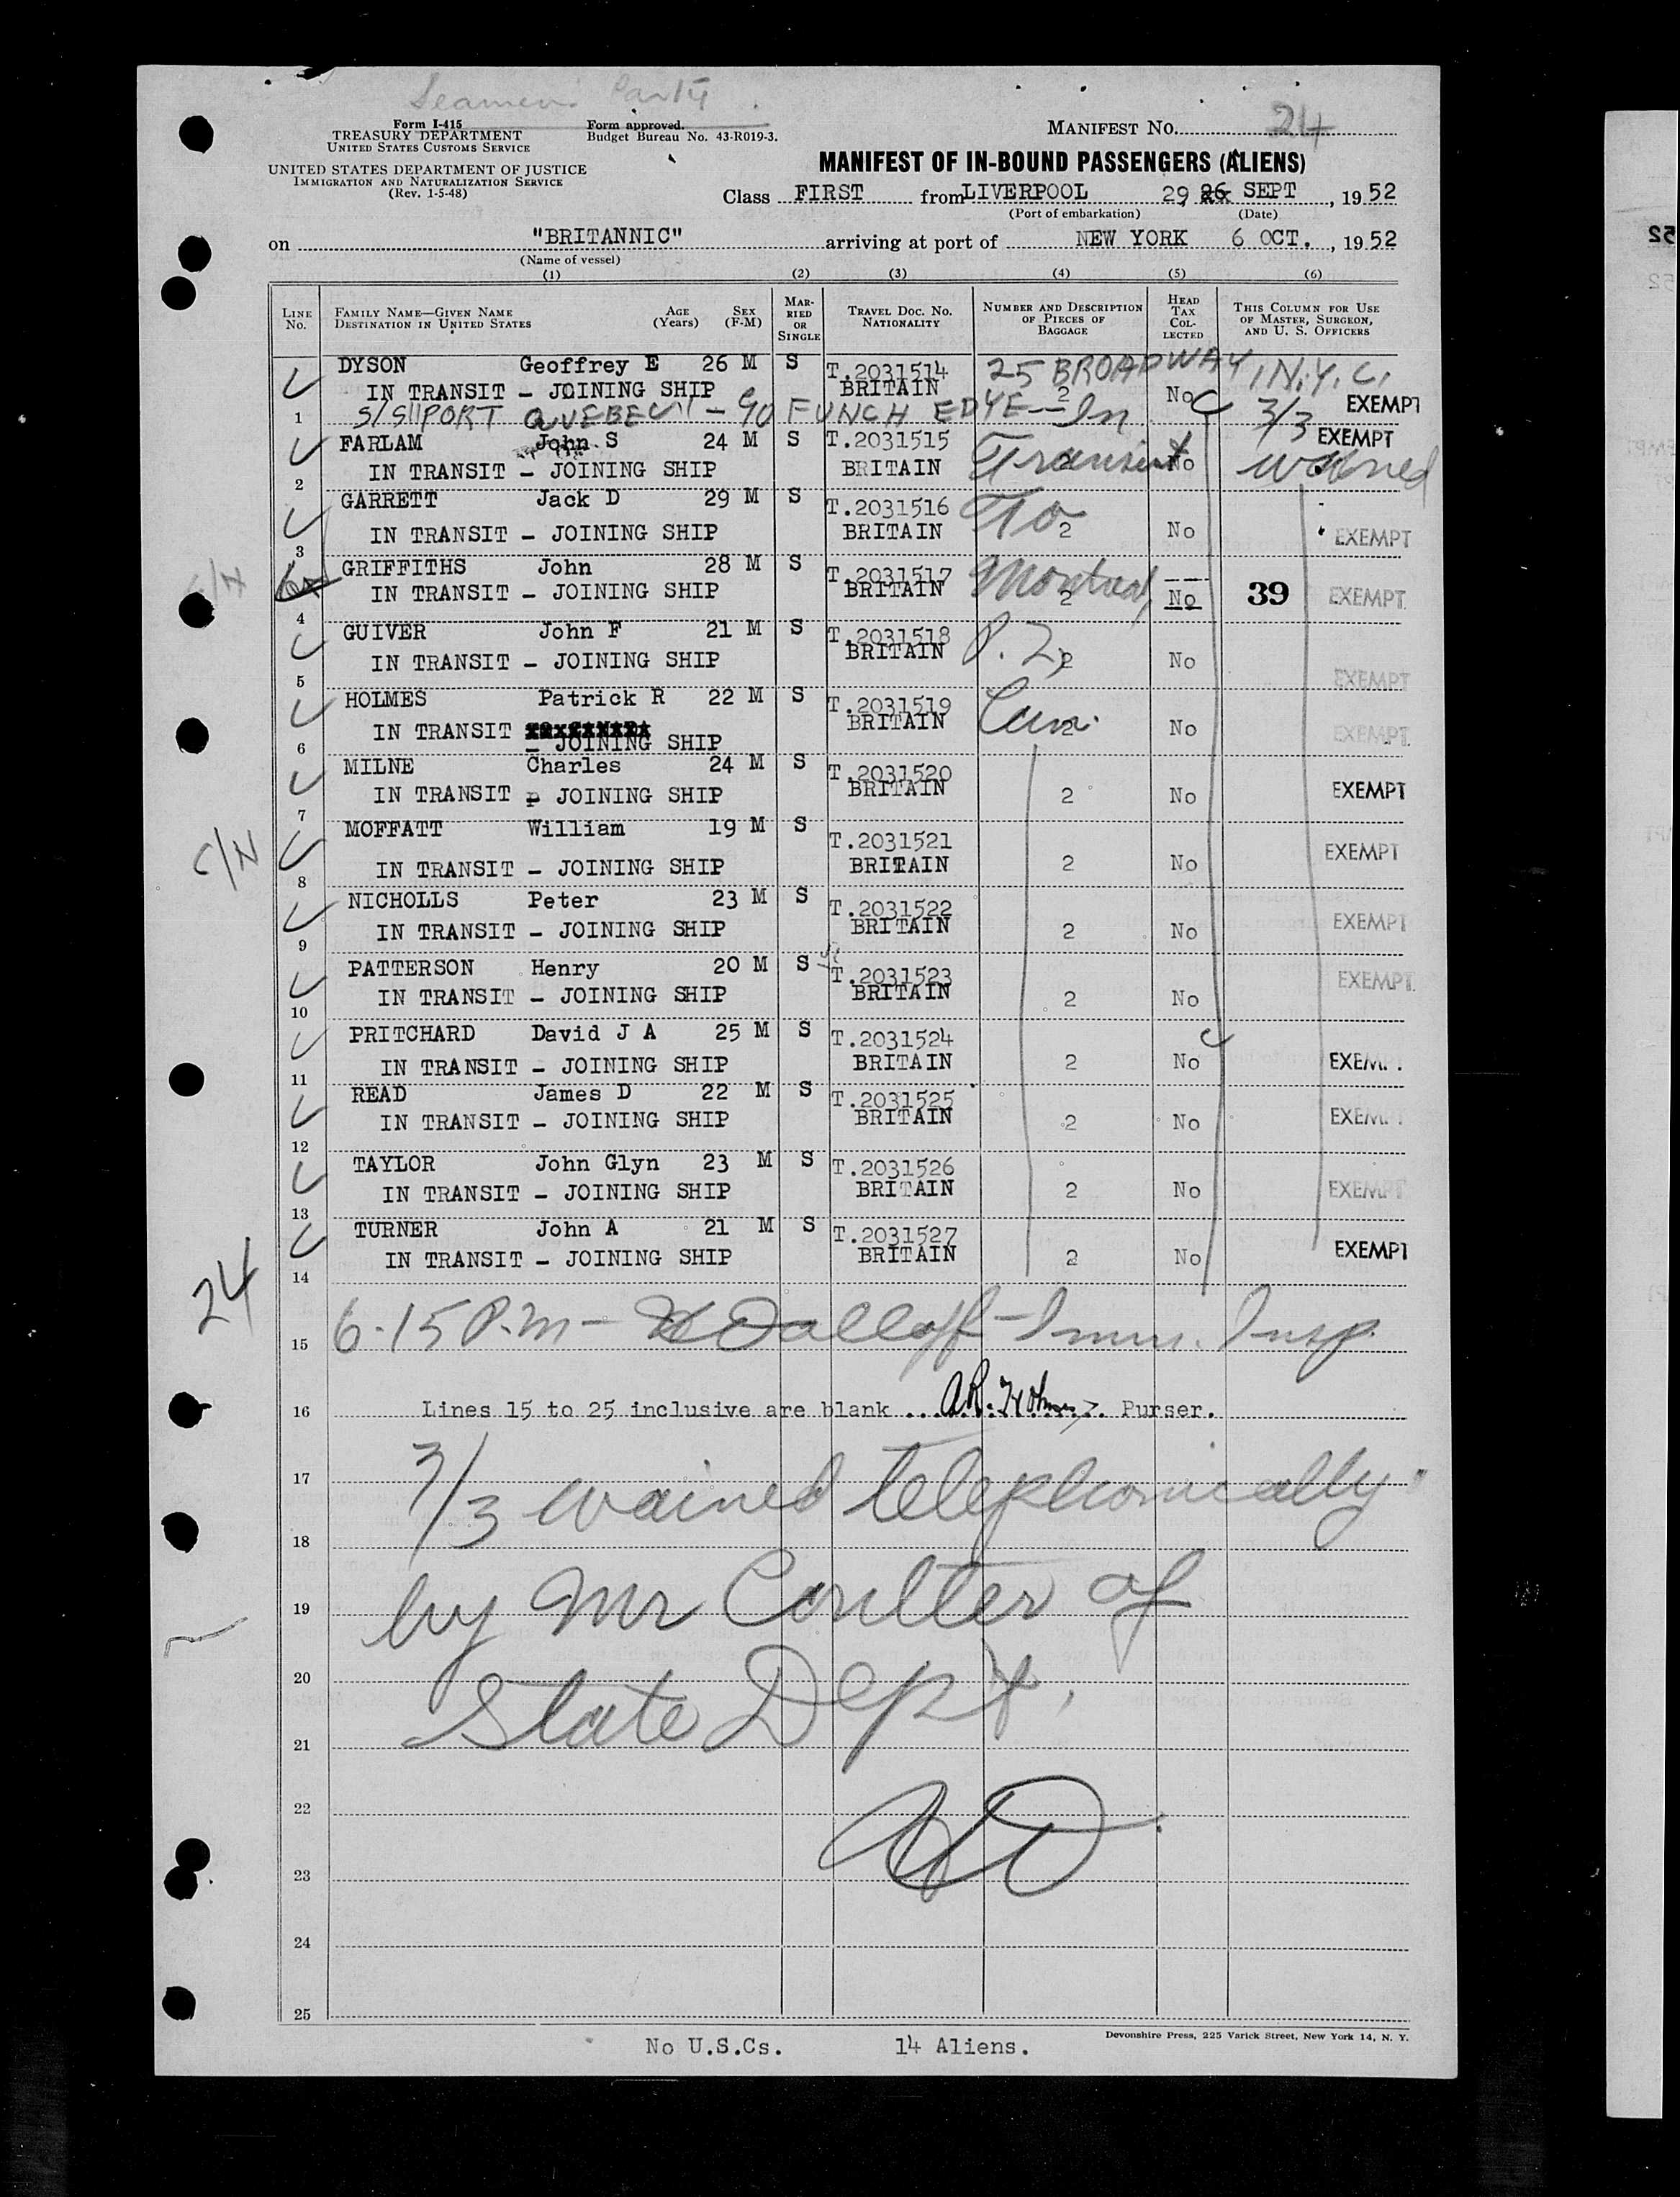 Seamen's Party
Form I-415
TREASURY DEPARTMENT
UNITED STATES CUSTOMS SERVICE
Form approved.
Budget Bureau No. 43-R019-3.
MANIFEST NO. 24
UNITED STATES DEPARTMENT OF JUSTICE
IMMIGRATION AND NATURALIZATION SERVICE
(Rev. 1-5-48)
MANIFEST OF IN-BOUND PASSENGERS (ALIENS)
Class FIRST from LIVERPOOL 29 26 SEPT, 1952
(Port of embarkation) (Date)
on "BRITANNIC" arriving at port of NEW YORK 6 OCT., 1952
(Name of vessel)
(1) (2) (3) (4) (5) (6)
LINE No. FAMILY NAME—GIVEN NAME DESTINATION IN UNITED STATES AGE (Years) SEX (F-M) MARRIED OR SINGLE TRAVEL DOC. NO. NATIONALITY NUMBER AND DESCRIPTION OF PIECES OF BAGGAGE HEAD TAX COLLECTED THIS COLUMN FOR USE OF MASTER, SURGEON, AND U. S. OFFICERS
DYSON Geoffrey E 26 M S T.2031514 25 BROADWAY, N.Y.C.
IN TRANSIT - JOINING SHIP BRITAIN 2 No EXEMPT
1 S/S PORT QUEBEC - C/O FUNCH EDYE - In 3/3
FARLAM John S 24 M S T.2031515 EXEMPT
IN TRANSIT - JOINING SHIP BRITAIN Transit 2 No waived
2
GARRETT Jack D 29 M S T.2031516 To
IN TRANSIT - JOINING SHIP BRITAIN 2 No EXEMPT
3
C/N GRIFFITHS John 28 M S T.2031517 Montreal,
IN TRANSIT - JOINING SHIP BRITAIN 2 No 39 EXEMPT
4
GUIVER John F 21 M S T.2031518 P.Q.
IN TRANSIT - JOINING SHIP BRITAIN 2 No
5 EXEMPT
HOLMES Patrick R 22 M S T.2031519 Can.
IN TRANSIT - JOINING SHIP BRITAIN 2 No EXEMPT
6
MILNE Charles 24 M S T.2031520
IN TRANSIT p JOINING SHIP BRITAIN 2 No EXEMPT
7
C/N MOFFATT William 19 M S T.2031521 EXEMPT
IN TRANSIT - JOINING SHIP BRITAIN 2 No
8
NICHOLLS Peter 23 M S T.2031522 EXEMPT
IN TRANSIT - JOINING SHIP BRITAIN 2 No
9
PATTERSON Henry 20 M S T.2031523 EXEMPT
IN TRANSIT - JOINING SHIP BRITAIN 2 No
10
PRITCHARD David J A 25 M S T.2031524
IN TRANSIT - JOINING SHIP BRITAIN 2 No EXEM
11
READ James D 22 M S T.2031525
IN TRANSIT - JOINING SHIP BRITAIN 2 No EXEM
12
TAYLOR John Glyn 23 M S T.2031526
IN TRANSIT - JOINING SHIP BRITAIN 2 No EXEMPT
13
TURNER John A 21 M S T.2031527
IN TRANSIT - JOINING SHIP BRITAIN 2 No EXEMPT
14
24
15 6.15 P.M - Imm. Insp.
16 Lines 15 to 25 inclusive are blank ... Purser.
17 3/3 waived telephonically
18
19 by Mr Coulter of
20 State Dept.
21
22
23
24
25
Devonshire Press, 225 Varick Street, New York 14, N. Y.
No U.S.Cs. 14 Aliens.